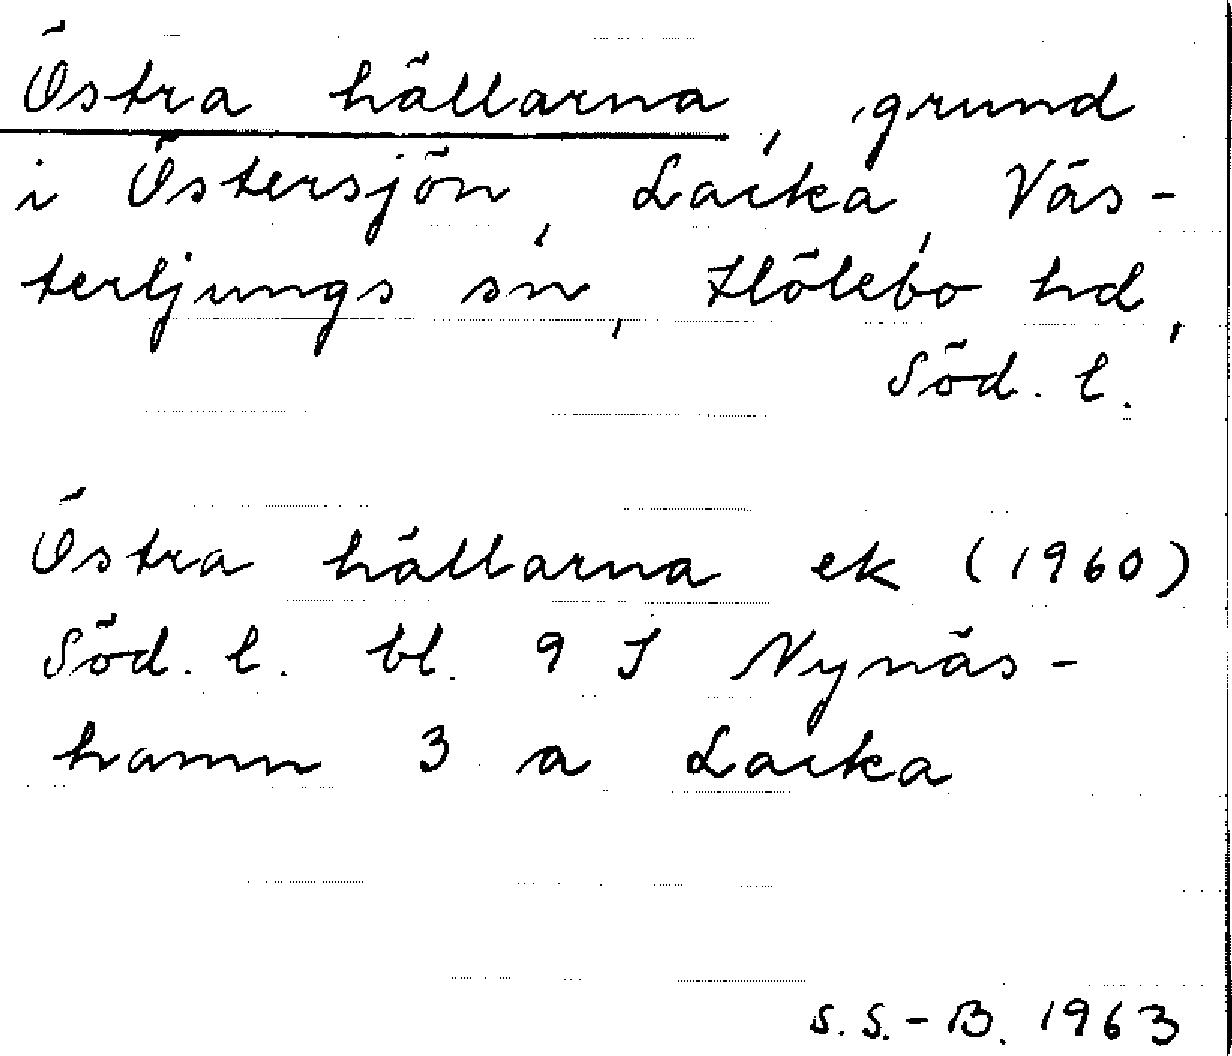 Östra hällarna, grund
i Östersjön, Lacka, Väs-
terljungs sn, Hölebo hd,
Söd. l.
Östra hällarna ek (1960)
Söd. l. bl. 9 I Nynäs-
hamn 3 a Lacka
S.S.-B. 1963